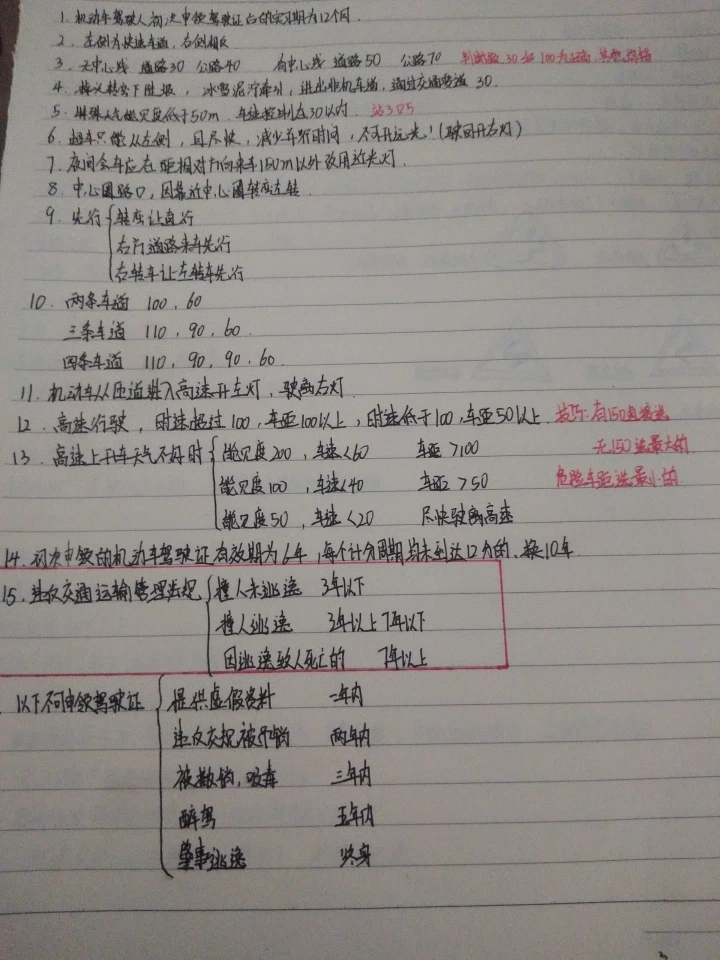 1. 机动车驾驶人初次申领驾驶证后的实习期为12个月.
2. 左侧为快速车道,右侧相反
3. 无中心线 道路30 公路40 有中心线 道路50 公路70 判断题 30和100为正确 其余均错
4. 掉头转弯下陡坡, 冰雪泥泞牵引, 进出非机车道, 通过交通弯道 30.
5. 特殊天气能见度低于50m 车速控制在30以内.
6. 超车只能从左侧,且尽快,减少并行时间,不可开远光!(驶回开右灯)
7. 夜间会车应在距相对方向来车150m以外改用近光灯.
8. 中心圈路口,因靠近中心圈转弯左转.
9. 先行 转弯让直行
右方道路来车先行
右转车让左转车先行
10. 两条车道 100,60
三条车道 110,90,60.
四条车道 110,90,90,60.
11. 机动车从匝道进入高速开左灯,驶离右灯.
12. 高速行驶,时速超过100,车距100以上,时速低于100,车距50以上. 技巧:有150直接选
13. 高速上开车天气不好时 能见度200,车速<60 车距>100 无150选最大的
能见度100,车速<40 车距>50 危险车距选最小的
能见度50,车速<20 尽快驶离高速
14. 初次申领的机动车驾驶证有效期为6年,每个计分周期均未到达12分的、换10年
15. 违反交通运输管理法规 撞人未逃逸 3年以下
撞人逃逸 3年以上7年以下
因逃逸致人死亡的 7年以上
以下不可申领驾驶证 提供虚假资料 一年内
违反交规被吊销 两年内
被撤销,吸毒 三年内
醉驾 五年内
肇事逃逸 终身